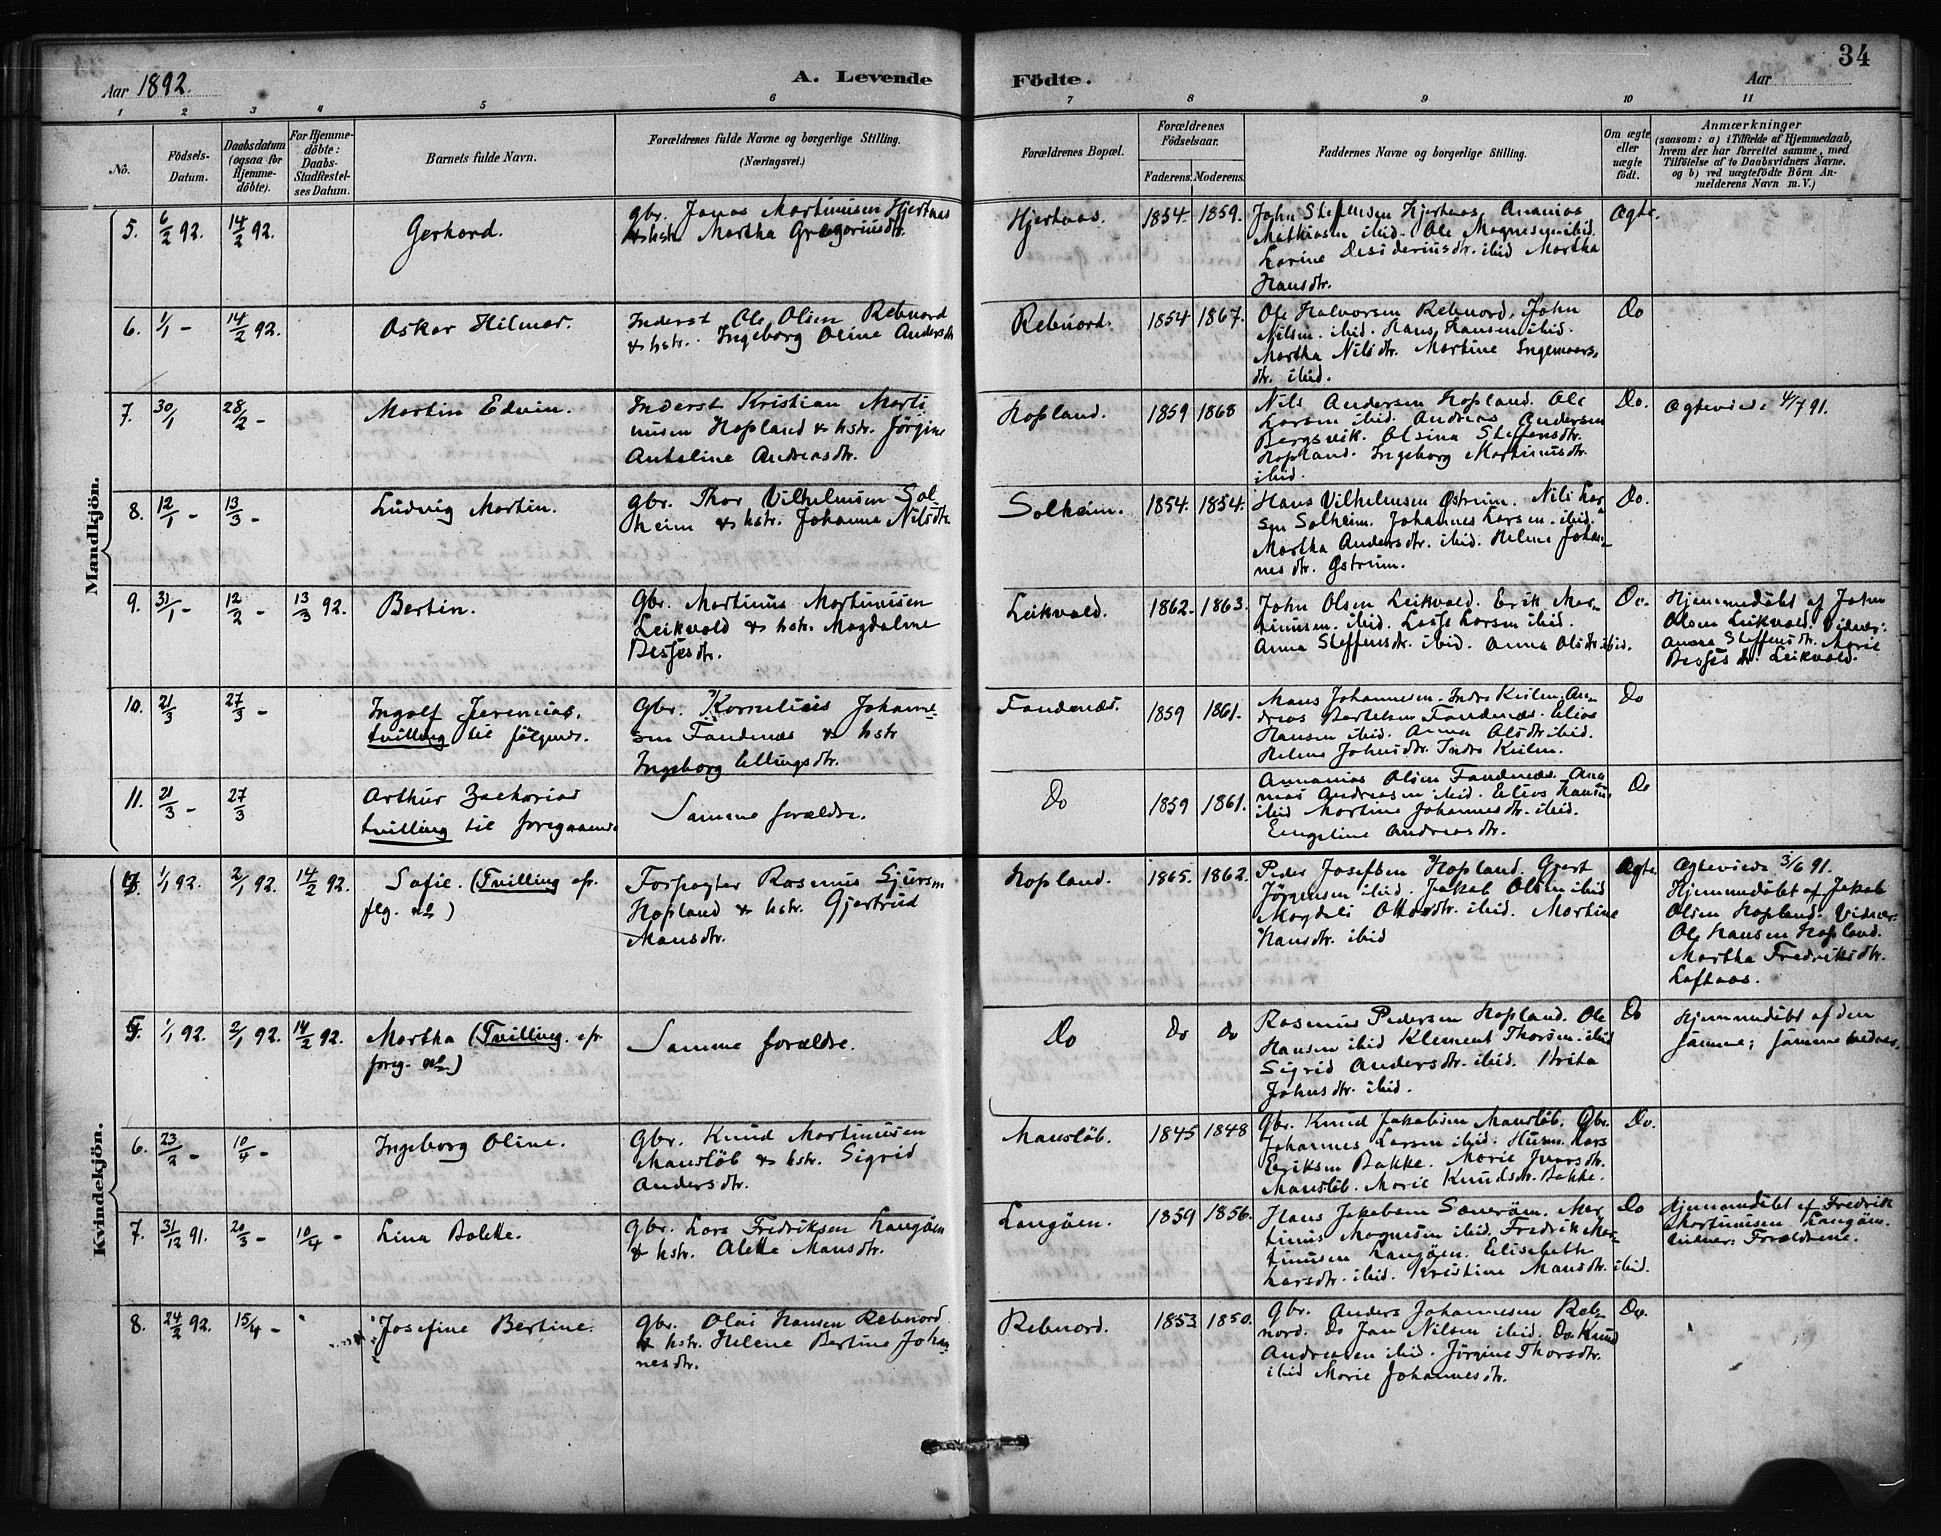 34
Aar 1892.
A. Levende
Födte.
Aar
1 2 3 4 5 6 7 8 9 10 11
No.
Födsels-
Datum.
Daabsdatum
(ogsaa for
Hjemme-
döbte).
For Hjemme-
döbte:
Daabs-
Stadfæstel-
ses Datum.
Barnets fulde Navn.
Forældrenes fulde Navne og borgerlige Stilling.
(Næringsvei.)
Forældrenes Bopæl.
Forældrenes
Födselsaar.
Faderens. Moderens.
Faddernes Navne og borgerlige Stilling.
Om ægte
eller
uægte
födt.
Anmærkninger
(saasom: a) i Tilfælde af Hjemmedaab,
hvem der har forrettet samme, med
Tilföielse af to Daabsvidners Navne.
og b) ved uægtefödte Börn An-
melderens Navn m. V.)
Mandkjön.
5. 6/2 92. 14/2 92.
Gerhard.
Gbr. Jonas Martinusen Hjertnas
& hstr. Martha Gregoriusdtr.
Hjertaas. 1854. 1859.
John Steffensen Hjertaas. Ananias
Mathiasen ibid. Ole Magnesen ibid.
Karine Desideriusdtr. ibid Martha
Hansdtr.
Ægte.
6. 1/1 - 14/2 92.
Oskar Hilmar.
Inderst Ole Olsen Rebnord
& hstr. Ingeborg Oline Andersdtr
Rebnord. 1854 1867.
Ole Halvorsen Rebnord. John
Nilsen. ibid. Hans Hansen ibid.
Martha Nilsdtr. Martine Ingemars
dtr. ibid.
Do
7. 30/1 28/2 -
Martin Edvin.
Inderst Kristian Marti
nusen Hopland & hstr. Jörgine
Antoline Andreasdtr.
Hopland. 1859 1868
Nils Andersen Hopland. Ole
Larsen ibid. Andreas Andersen
Bergsvik. Olsina Steffensdtr.
Hopland. Ingeborg Martinusdtr.
ibid.
Do.
Ægteviede 4/7 91.
8. 12/1 - 13/3 -
Ludvig Martin.
Gbr. Thor Vilhelmsen Sol-
heim & hstr. Johanna Nilsdtr.
Solheim. 1854. 1854.
Hans Vilhelmsen Østrem. Nils Lar-
sen Solheim. Johannes Larsen. ibid.
Martha Andersdtr. ibid. Helene Johan-
nesdtr. Østrem.
Do.
9. 31/1 - 12/2 - 13/3 92.
Bertin.
Gbr. Martinus Martinusen
Leikvold & hstr. Magdalene
Bessesdtr.
Leikvold. 1862. 1863.
John Olsen Leikvold. Erik Mar-
tinusen. ibid. Lasse Larsen ibid.
Anna Steffensdtr. ibid. Anna Olsdtr. ibid.
Do.
Hjemmedöbt af John
Olsen Leikvold. Vidner:
Anna Steffensdtr. Marie
Bessesdtr. Leikvold.
10. 21/3 27/3 -
Ingolf Jeremias.
tvilling til fölgende.
Gbr. Kornelius Johanne-
sen Fandenæs & hstr
Ingeborg Ellingsdtr.
Fandenæs. 1859 1861.
Mans Johannesen. Indre Keilen. An-
dreas Bertelsen Fandenæs. Elias
Hansen ibid. Anna Olsdtr. ibid.
Helene Johnsdtr. Indre Keilen.
Do
11. 21/3 - 27/3
Arthur Zacharias
tvilling til foregaaende
Samme forældre.
Do 1859 1861.
Annanias Olsen Fandenæs. Ana
nias Andreasen ibid. Elias Hansen
ibid Martine Johannesdtr. ibid.
Engeline Andreasdtr.
Do
Kvindekjön.
1/1 92. 2/1 92. 14/2 92.
Sofie. (Tvilling efr.
flg. no)
Forpagter Rasmus Sjursen
Hopland & hstr. Gjertrud
Mansdtr.
Hopland. 1865. 1862.
Peder Josefsen Hopland. Gjert
Jörgensen ibid. Jakob Olsen ibid
Magdeli Ottosdtr. ibid. Martine
Hansdtr. ibid
Ægte.
Ægteviede 3/6 91.
Hjemmedöbt af Jakob
Olsen Hopland. Vidner:
Ole Hansen Hopland.
Martha Fredriksdtr.
Loftaas.
5. 1/1 92. 2/1 92. 14/2 92.
Martha (Tvilling. efr.
forrg. no.)
Samme forældre.
Do Do Do
Rasmus Pedersen Hopland. Ole
Hansen ibid Klement Thorsen. ibid
Sigrid Andersdtr. ibid. Brita
Johnsdtr. ibid.
Do
Hjemmedöbt af den
samme; samme vidner.
6. 23/2 - 10/4 -
Ingeborg Oline.
Gbr. Knud Martinusen
Manslöb & hstr. Sigrid
Andersdtr.
Manslöb. 1845 1848
Gbr. Knud Jakobsen Manslöb. Gbr.
Johannes Larsen ibid. Husm. Lars
Eriksen Bakke. Marie Ivarsdtr.
Manslöb. Marie Knudsdtr. Bakke.
Do.
7. 31/12 91. 20/3 - 10/4 -
Lina Bolette.
Gbr. Lars Fredriksen Langöen
& hstr. Alette Mansdtr.
Langöen. 1859 1856.
Hans Jakobsen Sæveröen. Mar
tinus Magnesen ibid. Fredrik Mar-
tinusen Langöen. Elisabeth
Larsdtr. ibid. Kristine Mansdtr. ibid.
Do
Hjemmedöbt af Fredrik
Martinusen Langöen.
Vidner: Forældrene.
8. 24/2 92. 15/4 -
Josefine Bertine.
Gbr. Olai Hansen Rebnord
& hstr. Helene Bertine Johan-
nesdtr.
Rebnord. 1853 1850.
Gbr. Anders Johannesen Reb-
nord. Do Jan Nilsen ibid. Do. Knud
Andreasen ibid. Jörgine Thorsdtr.
ibid Marie Johannesdtr.
Do.